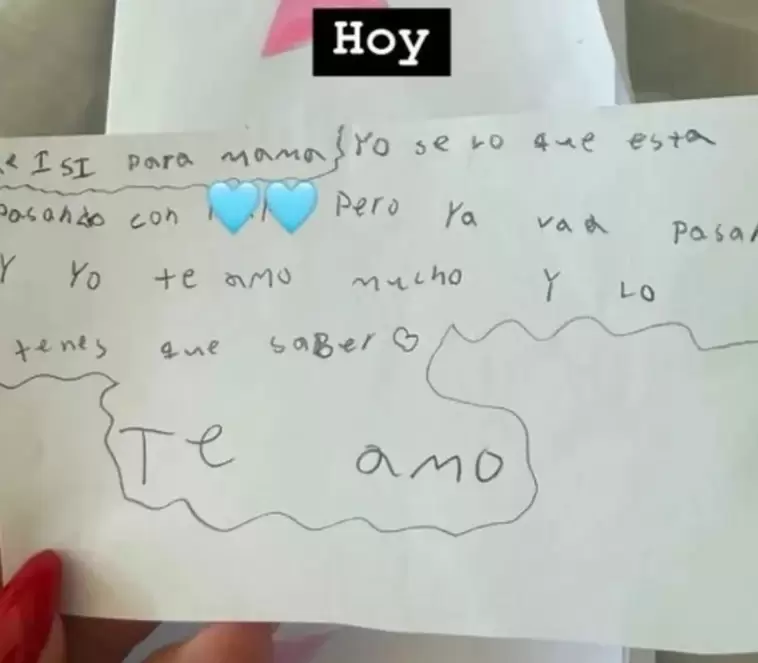 Hoy
e ISI para mama } Yo se lo que esta
pasando con Pero Ya va a pasar
Y Yo te amo mucho Y Lo
tenes que saber
Te amo